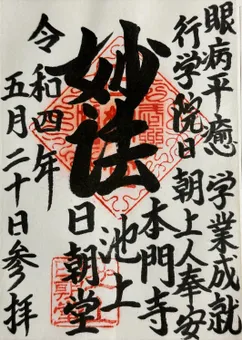 眼病平癒 学業成就
行学院日朝上人奉安
妙法
池上本門寺
日朝堂
令和四年
五月二十日参拝